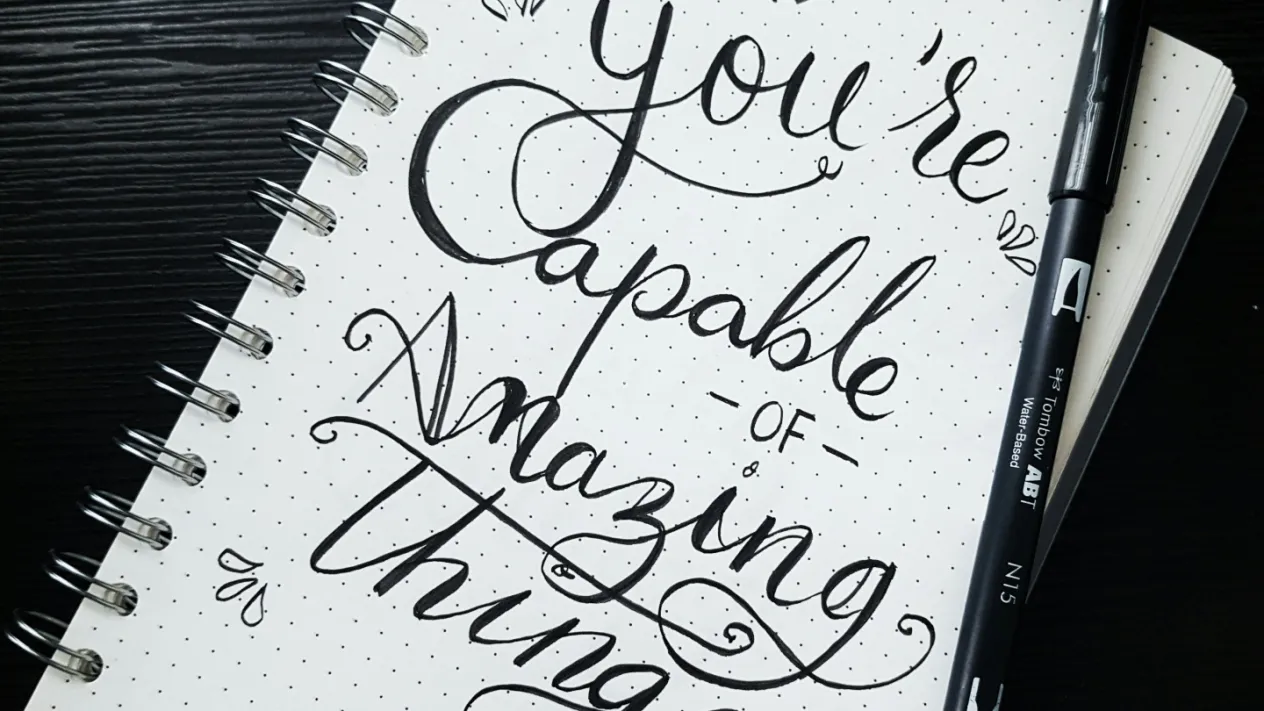 You're
Capable
- OF -
Amazing
Thing
Tombow ABT
Water-Based
N15